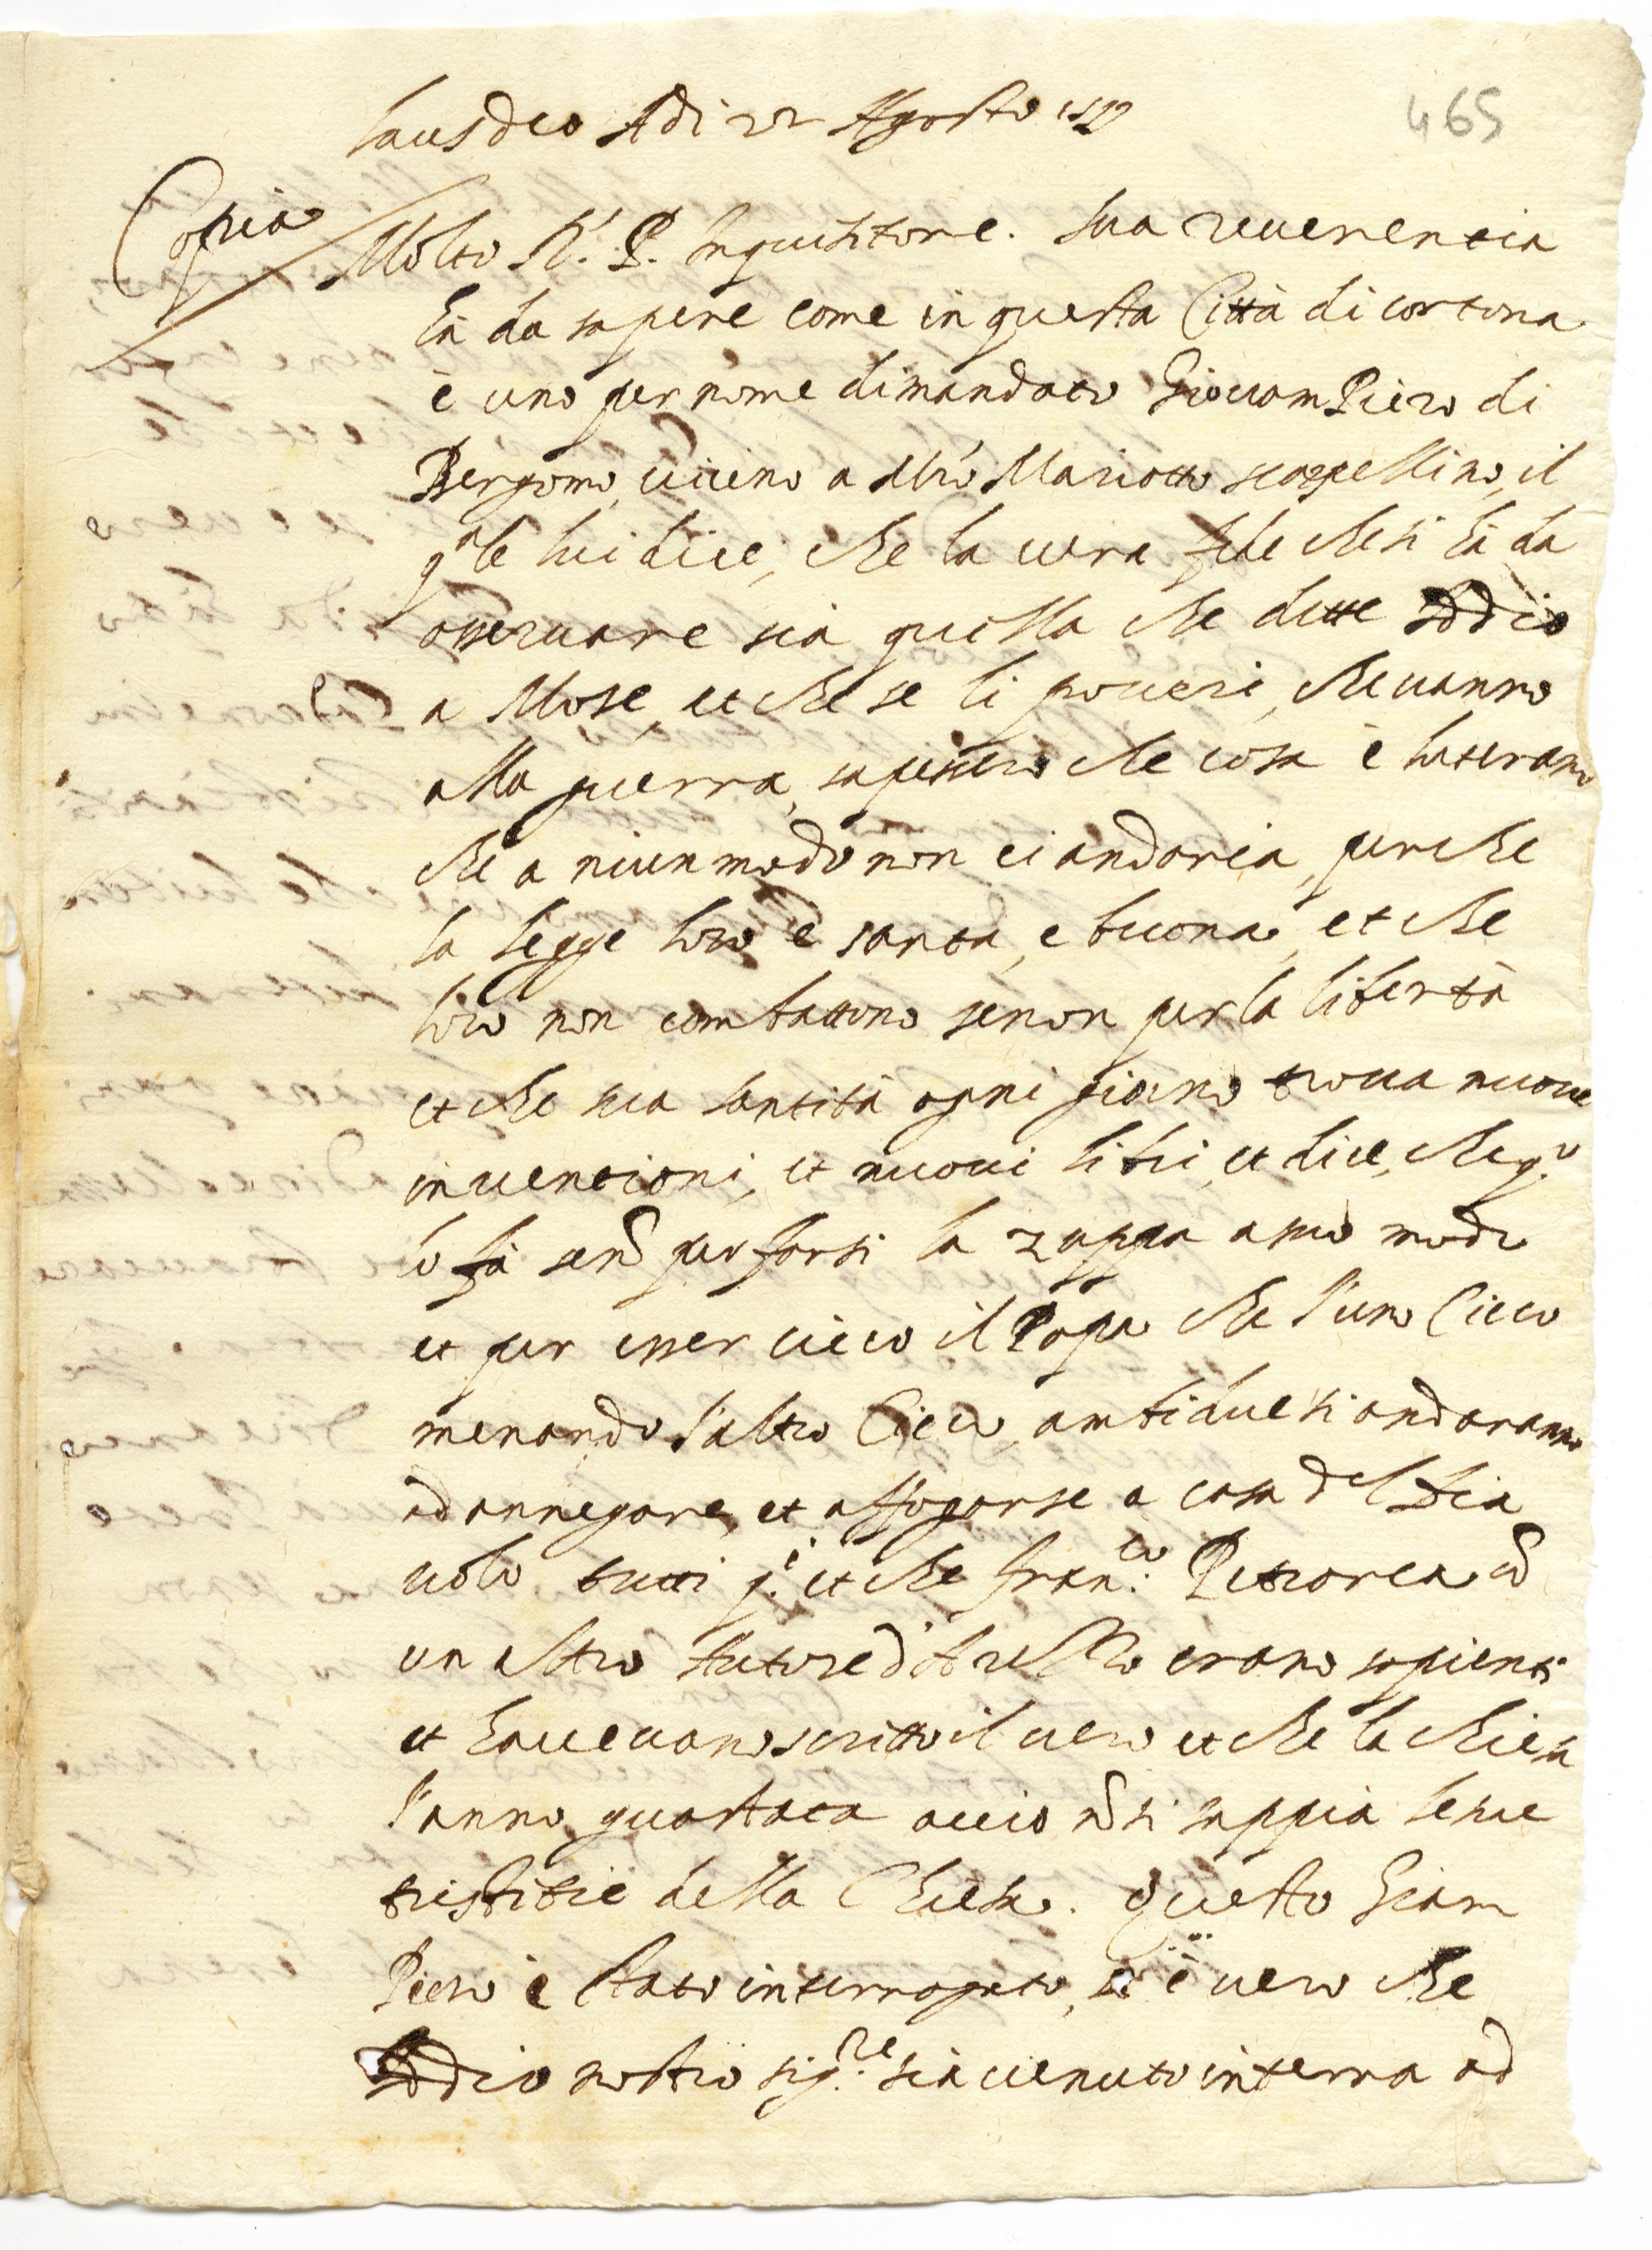 laus deo Adi 22 Agosto
465
Copia
Molto R.do P. Inquisitore. sua reuerentia
hà da sapere come in questa Città di cortona
è uno per nome dimandato Giouam Piero di
Bergomo, uicino a Mro Mariotto scarpellino, il
qle lui dice, che la uera fede che si hà da
osseruare sia quella che dette Iddio
a Mose, et che se li poueri, che uanno
alla guerra, sapessero che cosa è luterano
che a niun modo non ci andaria, perche
la legge loro è santa, e buona, et che
loro non combattono senon per la libertà
et che sua santità ogni giorno troua nuoue
inuentioni, et nuoui libri, et dice, che qo
lo fà senõ per farsi la zuppa a suo modo
et per esser cieco il Papa che l'uno Cieco
menando l'altro Cieco, ambidue si andaranno
ad annegare, et affogarse a casa del Dia
uolo tutti qi. et che Fran.co Petrarca cõ
un altro Autore d. erano sapienti
et haueuano scritto il uero et che la chiesa
l'anno guastata acciò nõ si sappia le sue
tristitie della Chiesa. Questo Giam
Piero è stato interrogato, se è uero che
Iddio nostro sig.re sia uenuto in terra ad